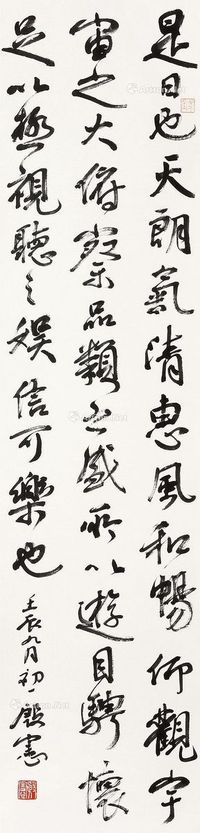 是日也天朗氣清惠風和暢仰觀宇
宙之大俯察品類之盛所以遊目騁懷
足以極視聽之娛信可樂也
壬辰九月初一